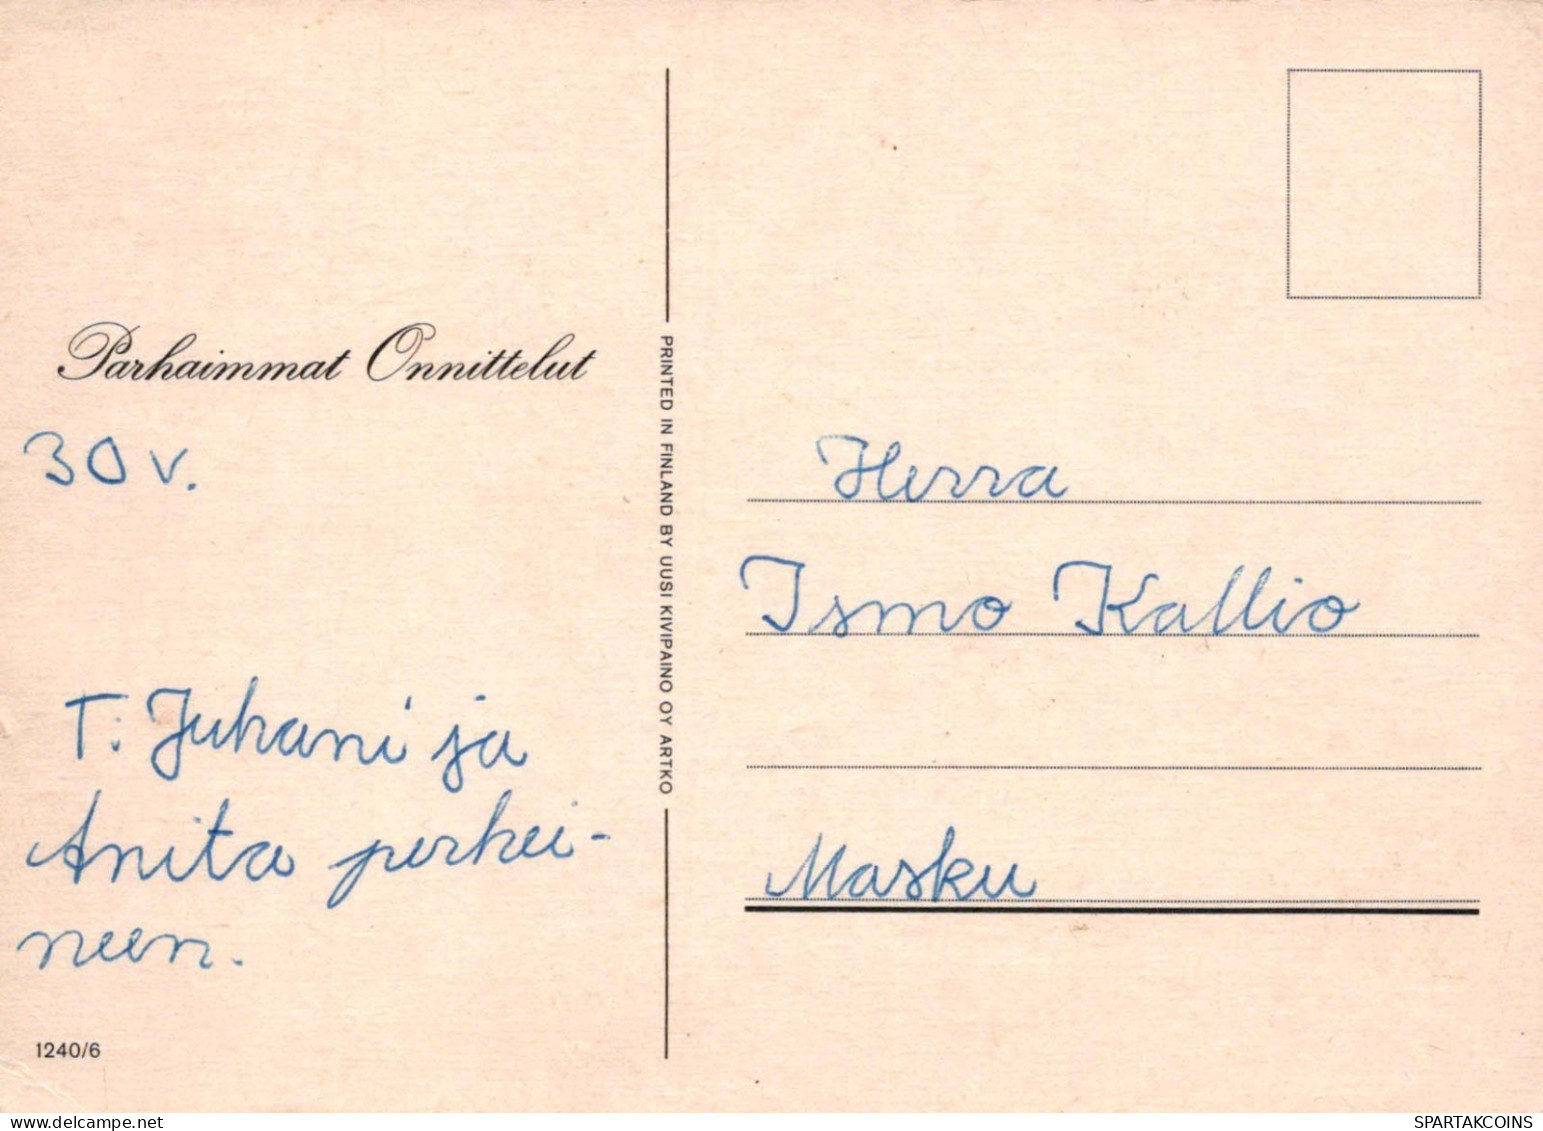 Parhaimmat Onnittelut
30 v.
T: Juhani ja
Anita perhei-
neen.
1240/6
PRINTED IN FINLAND BY UUSI KIVIPAINO OY ARTKO
Herra
Ismo Kallio
Masku
www.delcampe.net
SPARTAKCOINS